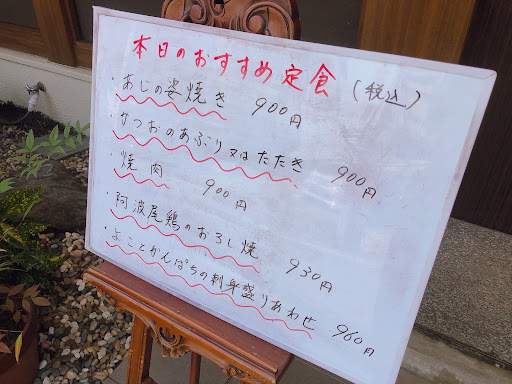 本日のおすすめ定食 (税込)
・あじの姿焼き 900円
・かつおのあぶり又はたたき 900円
・焼肉 900円
・阿波尾鶏のおろし焼 930円
・よことかんぱちの刺身盛りあわせ 960円